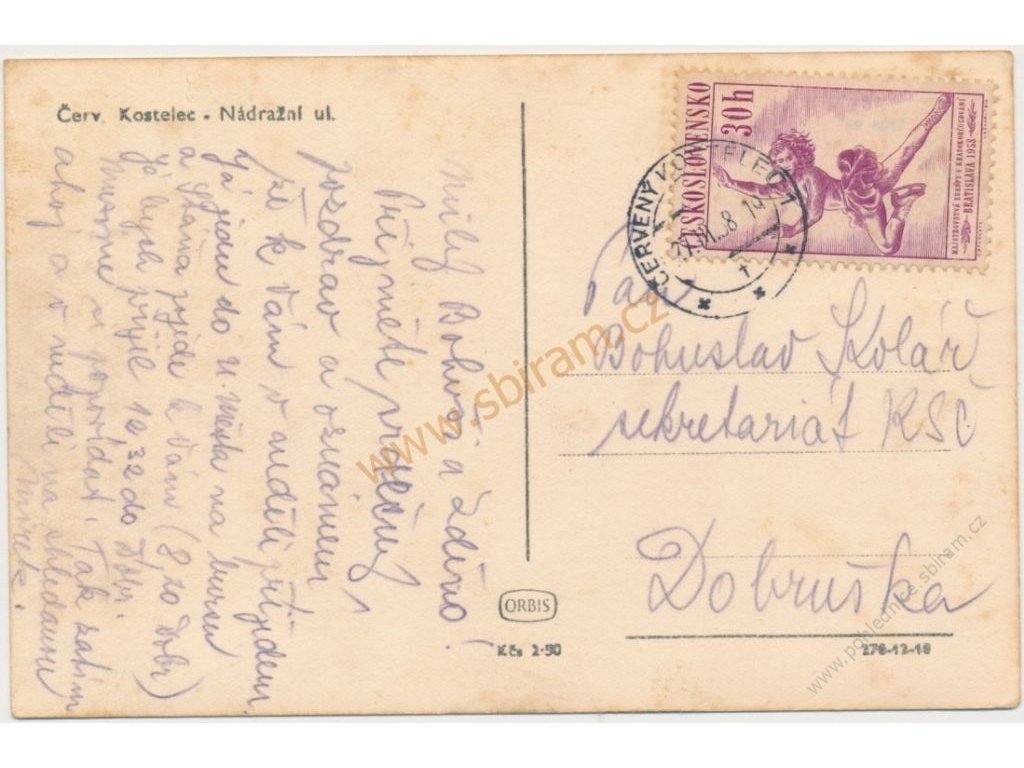 Červ. Kostelec - Nádražní ul.
Milý Bohouši a Zdeňko!
Přijměte srdečný
pozdrav a oznámení
že k Vám v neděli přijedem.
Já jedu do n. města na bursu
a Stáňa přijede k Vám (8,20 Dobr)
Já bych přijel 10,32 do Dobr.
Musíme si popovídat. Tak zatím
ahoj a v neděli na shledanou
Mirek.
ČESKOSLOVENSKO
30 h
MAJSTROVSTVÁ EURÓPY V KRASOKORČUĽOVANÍ
BRATISLAVA 1958
ČERVENÝ KOSTELEC 1
Pan
Bohuslav Kolář
sekretariát KSČ
Dobruška
ORBIS
Kčs 2·50
278-12-18
www.sbiram.cz
www.pohlednice.sbiram.cz